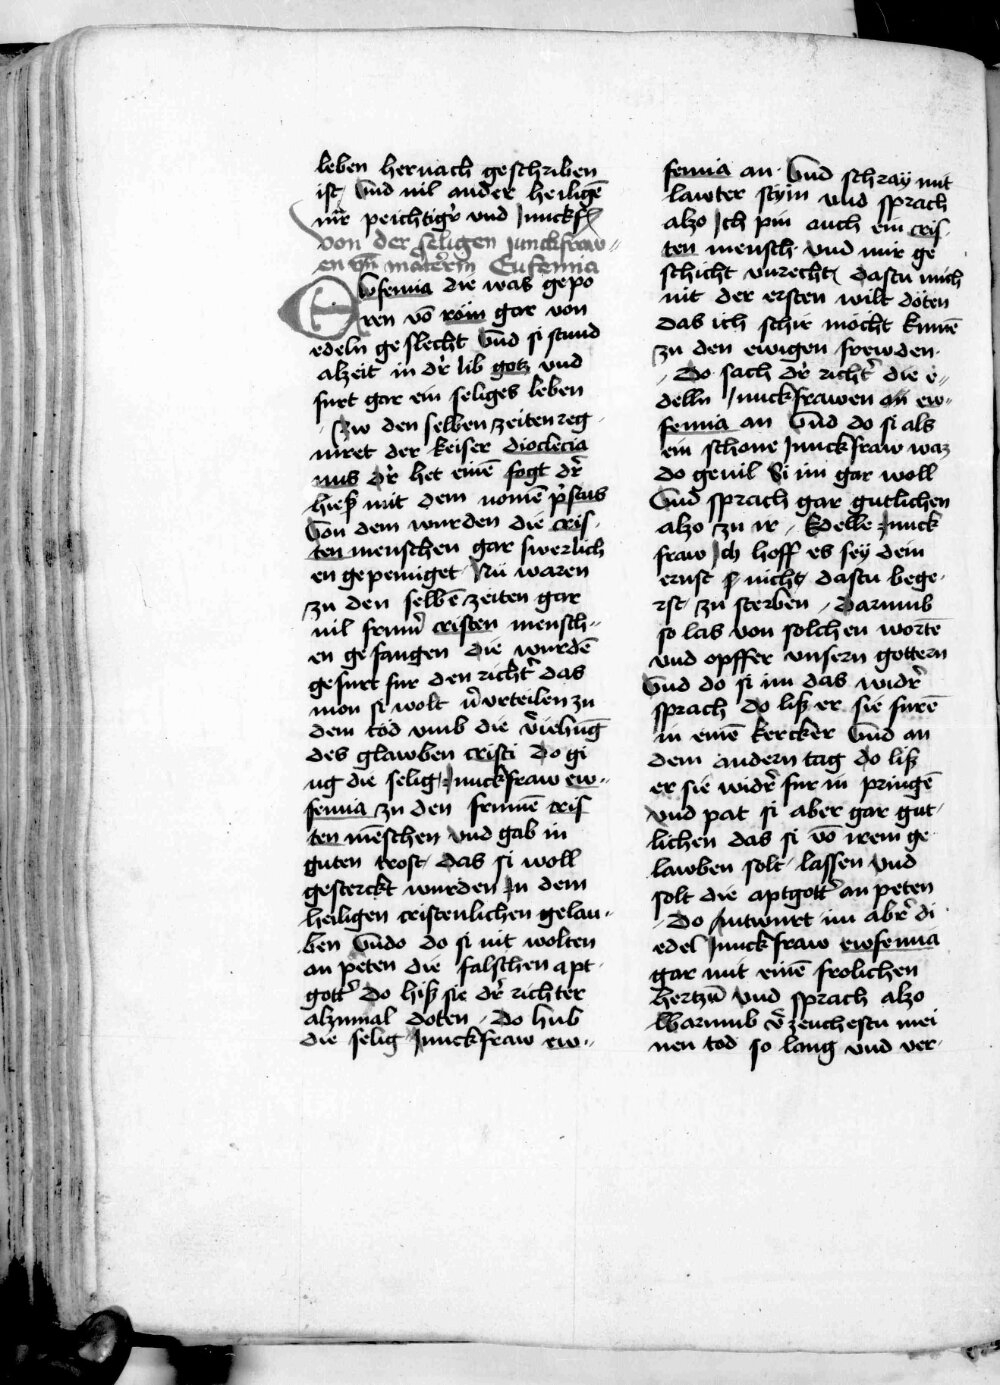 leben hernach geschriben
ist Vnd vil ander heiligē
mr̄ peichtigr̄ vnd Junckfr̄
von der seligen junckfraw„
en vn̄ mart̄erin Eufemia
Ewfemia die was gepo
ren vō rom gar von
edeln geslecht Vnd si stund
alzeit in dr̄ lib gotz vnd
furt gar ein seliges leben
Zw den selben zeiten reg
niret der keiser dioclecia
nus dr̄ het einē fogt dr̄
hieß mit dem nomē pr̄scus
Von dem wurden die cris
ten menschen gar swerlich
en gepeiniget Nu waren
zu den selbē zeiten gar
vil frum̄ cristen mensch„
en gefangen die wurdē
gefurt fur den richtr̄ das
mon si wolt v̄rteilen zu
dem tod vmb die v̄iehūg
des glawben cristi Do gi
ng die selig Junckfraw ew„
femia zu den frumē cris
ten mēschen vnd gab in
guten trost das si woll
gesterckt wurden in dem
heiligen cristenlichen gelau„
ben Vndo do si nit wolten
an peten die falschen apt
gottr̄ do hiß sie dr̄ richter
alzumal doten Do hub
die selig Junckfraw ew„
femia an Vnd schray mit
lawter stym vnd sprach
alzo Jch pin auch ein cris
ten mensch vnd mir ge
schicht vnrecht dastu mich
nit der ersten wilt döten
das ich schir möcht kumē
zu den ewigen frewden
Do sach dr̄ richtr̄ die e„
delln junckfrawen an ew„
femia an Vnd do si als
ein schone Junckfraw waz
do geuil Si im gar woll
Vnd sprach gar gutlichen
alzo zu ir Edelle Junck
fraw Jch hoff es sey dein
ernst nicht dastu bege
rst zu sterben Darumb
so las von solchen wortē
vnd opffer vnsern gottern
Vnd do si im das widr̄
sprach do liß er sie furē
in einē kercker Vnd an
dem andern tag do liß
er sie widr̄ fur in pringē
vnd pat si aber gar gut
lichen das si vō irem ge
lawben solt lassen vnd
solt die aptgottr̄ an peten
Do Antwurt im abr̄ di
edel Junckfraw ewfemia
gar mit einē frolichen
hertzn̄ vnd sprach alzo
Warumb v̄zeuchestu mei
nen tod so lang vnd ver